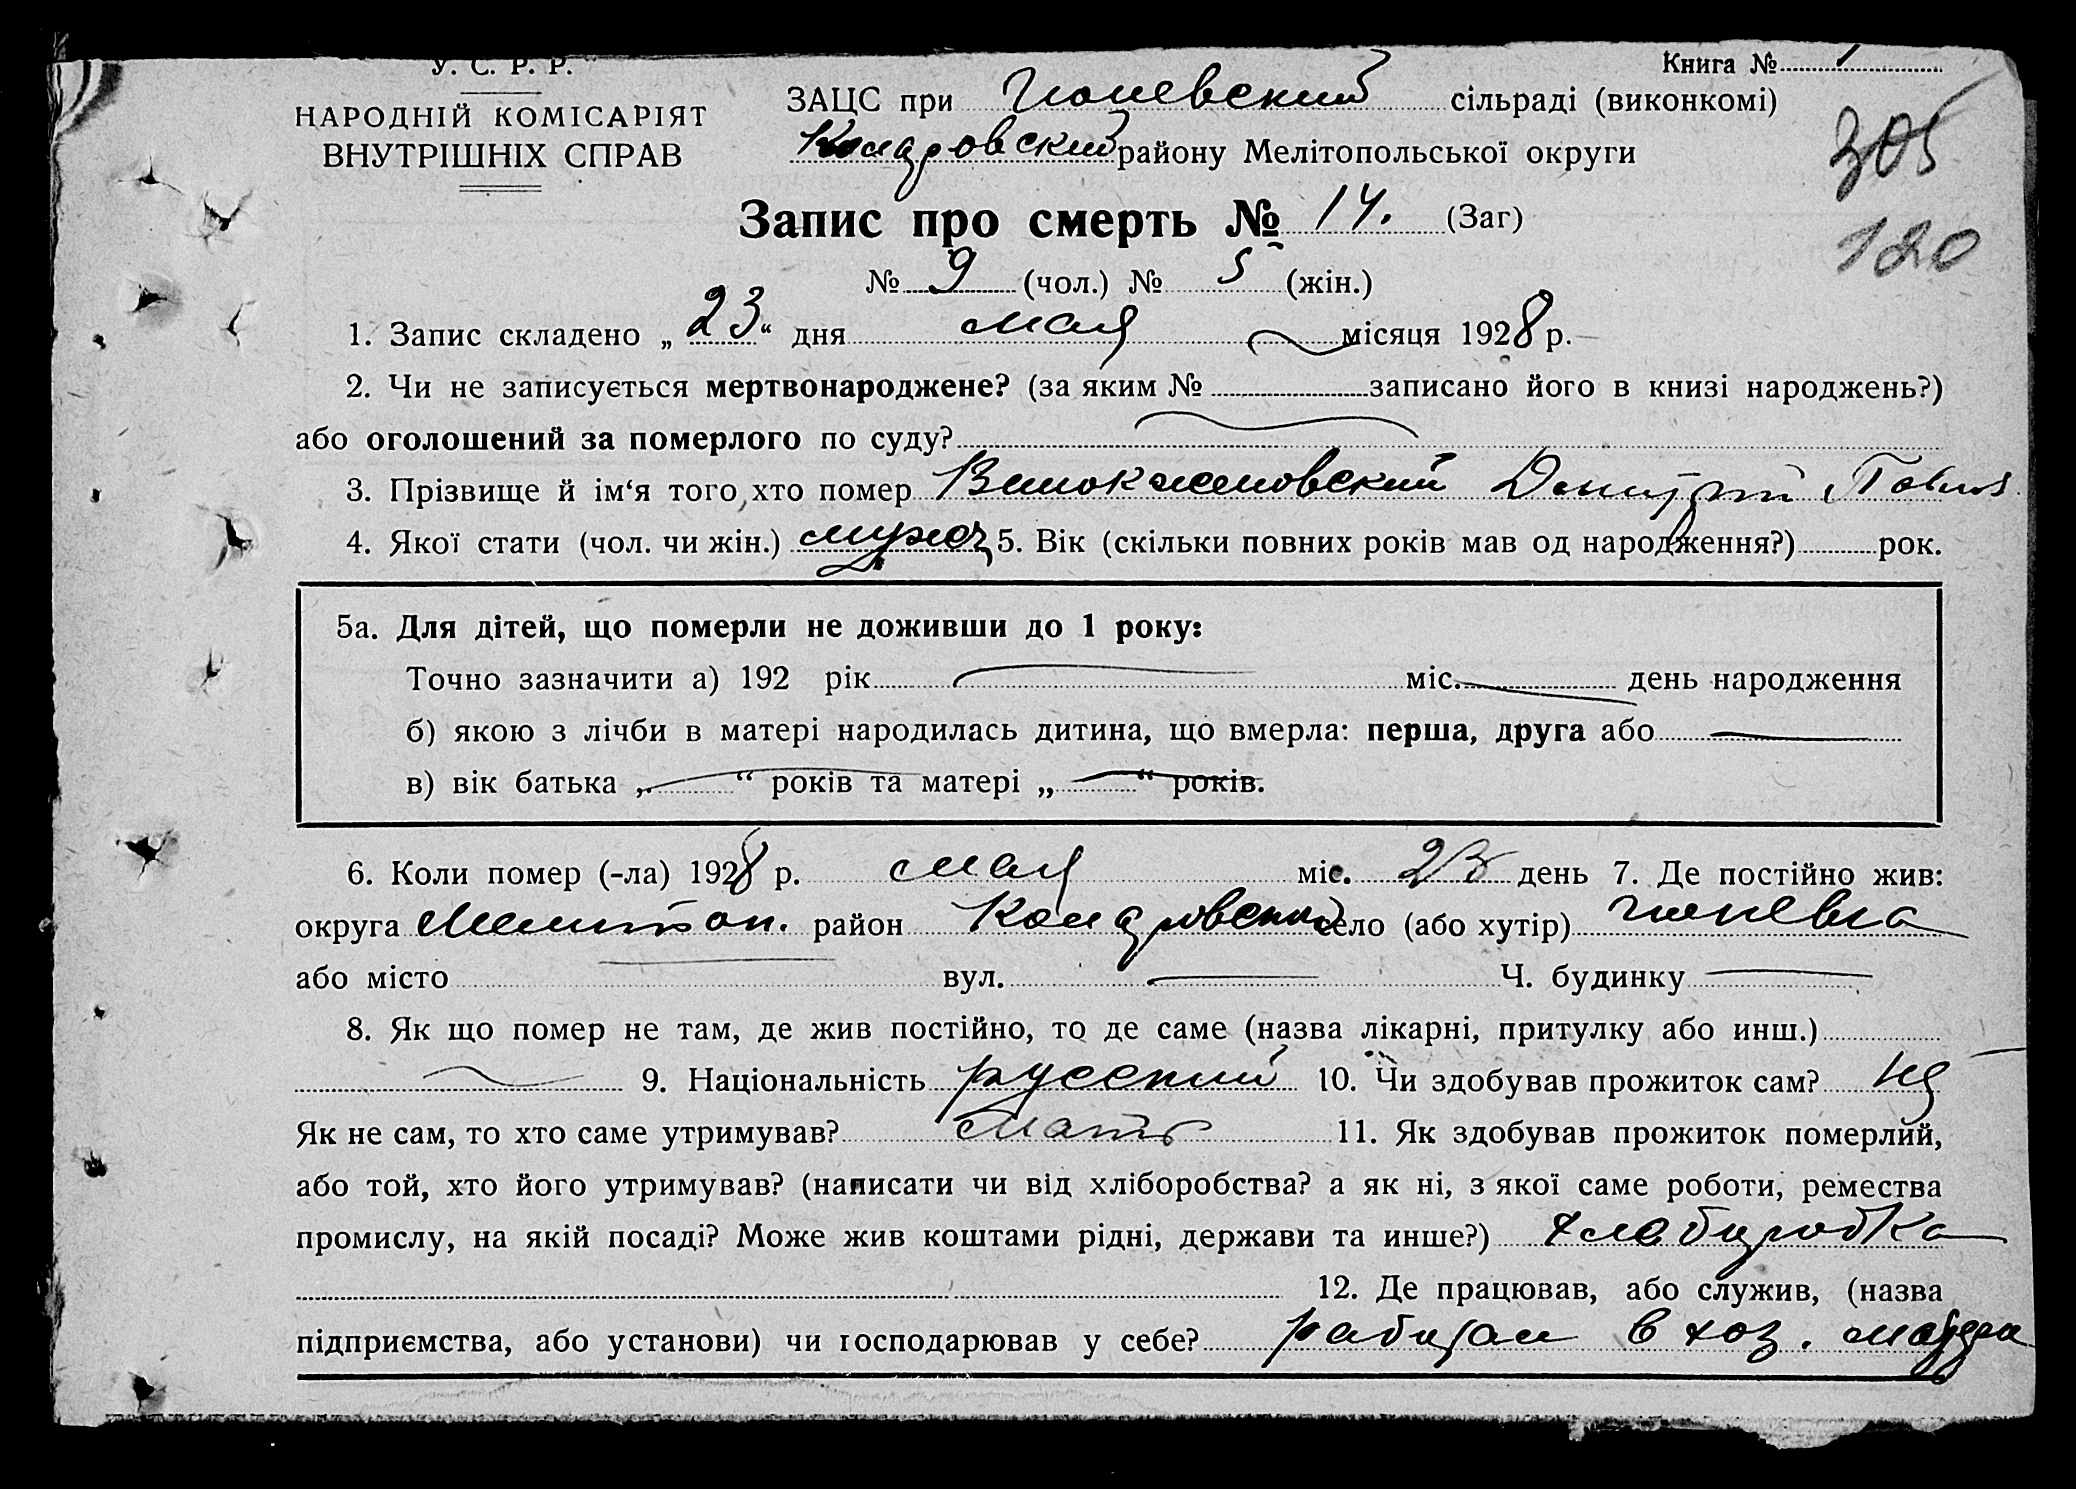 У. С. Р. Р.
Книга № 1
НАРОДНІЙ КОМІСАРІЯТ
ВНУТРІШНІХ СПРАВ
ЗАЦС при Гюневский сільраді (виконкомі)
района Мелітопольської округи
305
120
Запис про смерть № 14. (Заг)
№ 9 (чол.) № 5 (жін.)
1. Запис складено „ 23 “ дня мая місяця 1928 р.
2. Чи не записується мертвонароджене? (за яким № записано його в книзі народжень?)
або оголошений за померлого по суду?
3. Прізвище й ім‘я того, хто помер Дмитрий
4. Якої стати (чол. чи жін.) 5. Вік (скільки повних років мав од народження?) рок.
5а. Для дітей, що померли не доживши до 1 року:
Точно зазначити а) 192 рік міс. день народження
б) якою з лічби в матері народилась дитина, що вмерла: перша, друга або
в) вік батька „ “ років та матері „ “ років.
6. Коли помер (-ла) 1928 р. мая міс. 23 день 7. Де постійно жив:
округа Мелитоп. район село (або хутір) Гюневка
або місто вул. Ч. будинку
8. Як що помер не там, де жив постійно, то де саме (назва лікарні, притулку або инш.)
9. Національність русский 10. Чи здобував прожиток сам?
Як не сам, то хто саме утримував? мать 11. Як здобував прожиток померлий,
або той, хто його утримував? (написати чи від хліборобства? а як ні, з якої саме роботи, ремества
промислу, на якій посаді? Може жив коштами рідні, держави та инше?)
12. Де працював, або служив, (назва
підприємства, або установи) чи господарював у себе? работал в хоз.